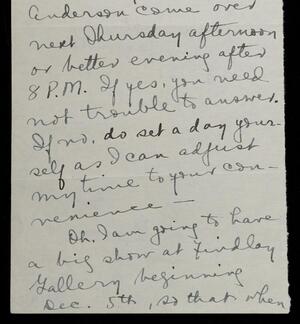 Anderson come over
next Thursday afternoon
or better evening after
8 P.M. If yes, you need
not trouble to answer.
If no, do set a day your-
self as I can adjust
my time to your con-
venience —
Oh, I am going to have
a big show at Findlay
Gallery beginning
Dec. 5th, so that when